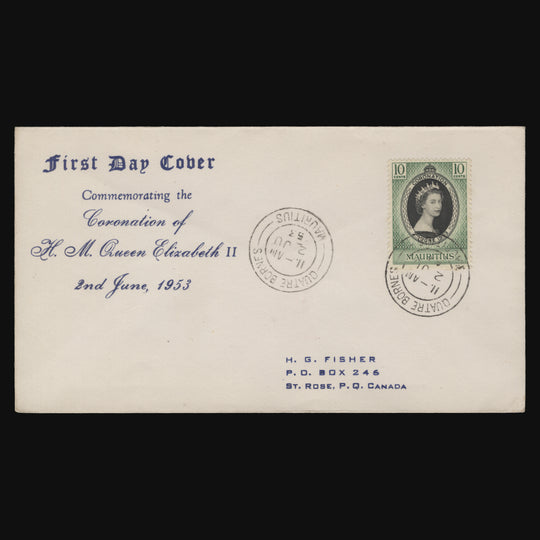 First Day Cover
Commemorating the
Coronation of
H. M. Queen Elizabeth II
2nd June, 1953
QUATRE BORNES
11-AM
2 JU
53
MAURITIUS
10 CENTS
CORONATION
10 CENTS
2ND JUNE 1953
MAURITIUS
QUATRE BORNES
11-AM
2
H. G. FISHER
P. O. BOX 246
ST. ROSE, P.Q. CANADA